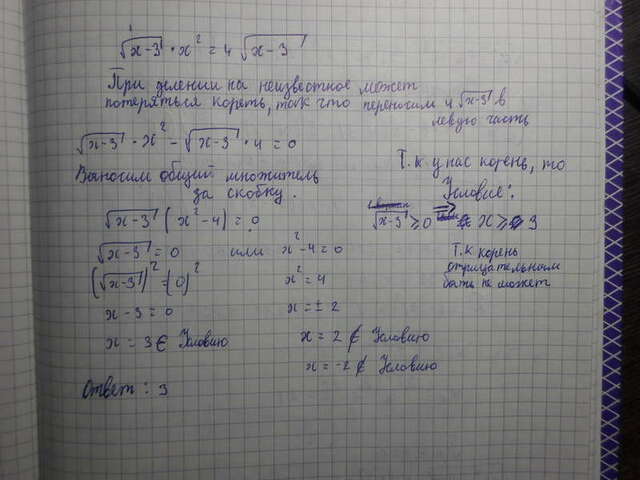 √(x-3) · x² = 4 √(x-3)
При делении на неизвестное может
потеряться корень, так что переносим 4√(x-3) в
левую часть
√(x-3) · x² - √(x-3) · 4 = 0
Выносим общий множитель
за скобку.
√(x-3) (x² - 4) = 0
√(x-3) = 0 или x² - 4 = 0
(√(x-3))² = (0)² x² = 4
x - 3 = 0 x = ± 2
x = 3 ∈ Условию x = 2 ∉ Условию
x = -2 ∉ Условию
Ответ: 3
Т.к у нас корень, то
Условие:
√(x-3) ≥ 0 ⇒ x ≥ 3
Т.к корень
отрицательным
быть не может